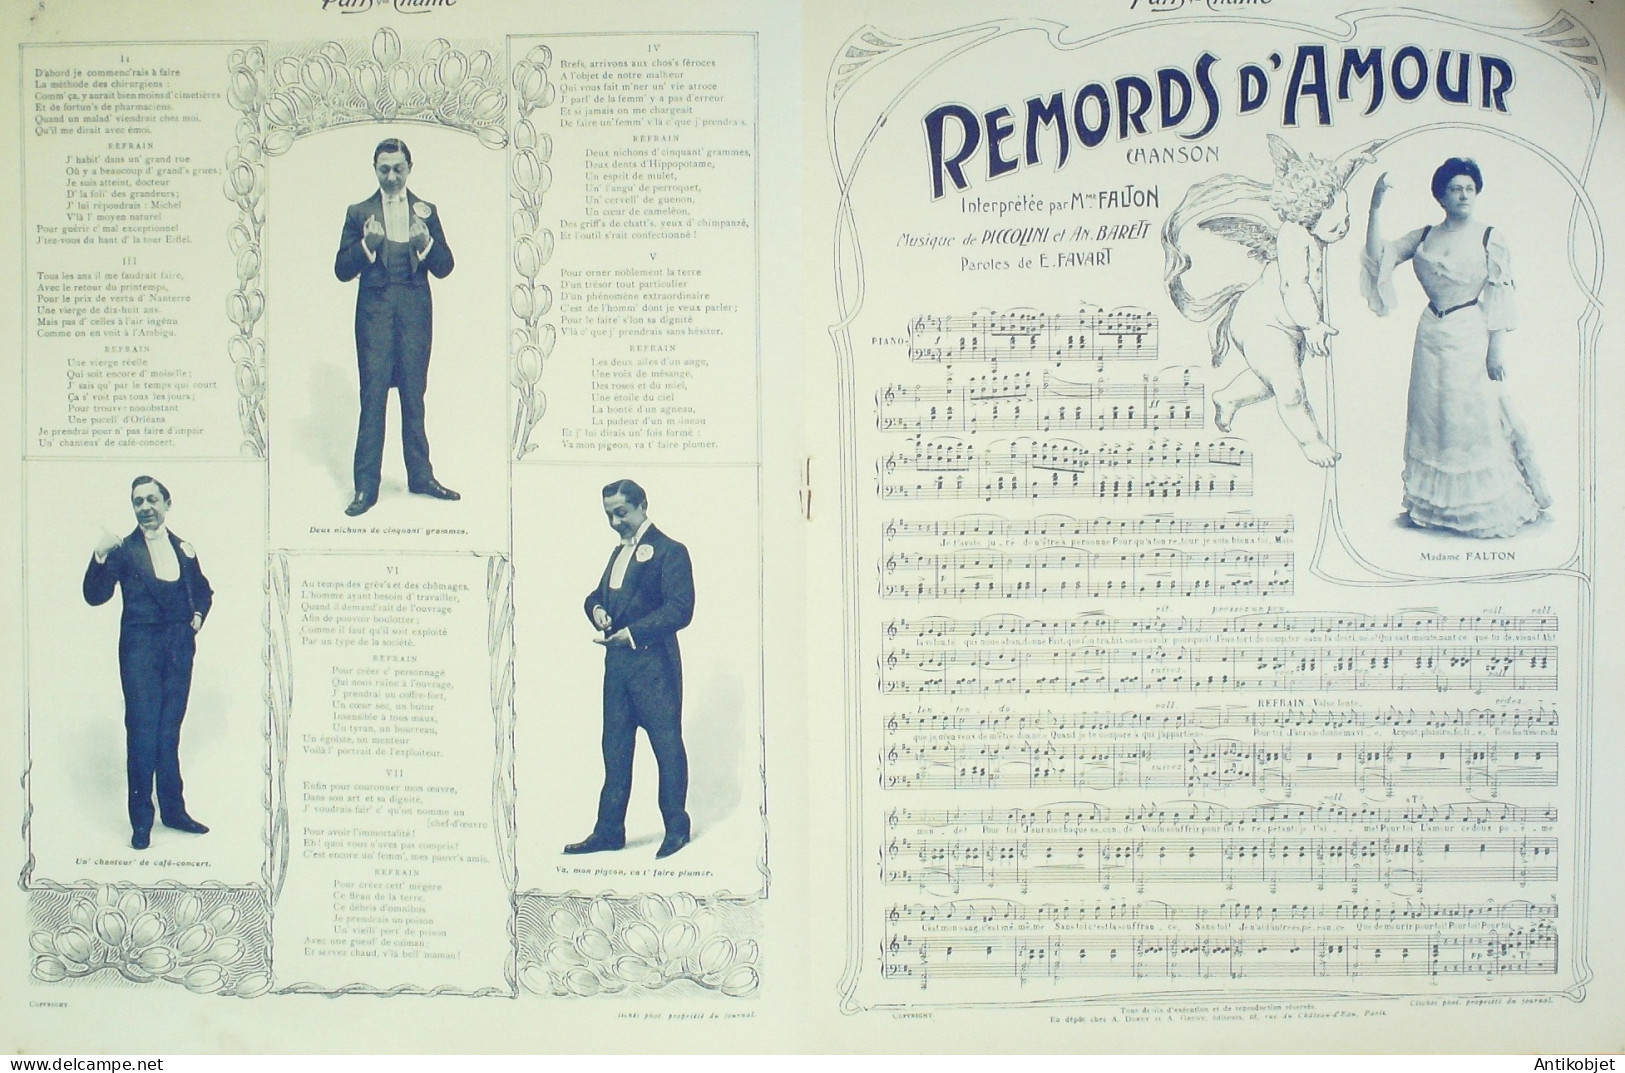 8
Paris qui Chante
II
D'abord je commenc'rais à faire
La méthode des chirurgiens :
Comm' ça, y aurait bien moins d' cimetières
Et de fortun's de pharmaciens.
Quand un malad' viendrait chez moi,
Qu'il me dirait avec émoi.
REFRAIN
J' habit' dans un' grand rue
Où y a beaucoup d' grand's grues;
Je suis atteint, docteur
D' la foli' des grandeurs;
J' lui répondrais : Michel
V'là l' moyen naturel
Pour guérir c' mal exceptionnel
J'tez-vous du haut d' la tour Eiffel.
III
Tous les ans il me faudrait faire,
Avec le retour du printemps,
Pour le prix de vertu d' Nanterre
Une vierge de dix-huit ans.
Mais pas d' celles à l'air ingénu
Comme on en voit à l'Ambigu.
REFRAIN
Une vierge réelle
Qui soit encore d' moiselle;
J' sais qu' par le temps qui court
Ça s' voit pas tous les jours;
Pour trouver nonobstant
Une pucell' d'Orléans
Je prendrai pour n' pas faire d'impair
Un' chanteus' de café-concert.
Un' chanteus' de café-concert.
Deux nichons de cinquant' grammes.
IV
Brefs, arrivons aux chos's féroces
A l'objet de notre malheur
Qui vous fait m'ner un' vie atroce
J' parl' de la femm' y a pas d'erreur
Et si jamais on me chargeait
De faire un' femm' v'là c' que j' prendrais.
REFRAIN
Deux nichons d' cinquant' grammes,
Deux dents d'Hippopotame,
Un esprit de mulet,
Un' l'angu' de perroquet,
Un' cervell' de guenon,
Un cœur de caméléon,
Des griff's de chatt's, yeux d' chimpanzé,
Et l'outil s'rait confectionné !
V
Pour orner noblement la terre
D'un trésor tout particulier
D'un phénomène extraordinaire
C'est de l'homm' dont je veux parler;
Pour le faire s'lon sa dignité
V'là c' que j' prendrais sans hésiter.
REFRAIN
Les deux ailes d'un ange,
Une voix de mésange,
Des roses et du miel,
Une étoile du ciel
La bonté d'un agneau,
La pudeur d'un moineau
Et j' lui dirais un' fois formé :
Va mon pigeon, va t' faire plumer.
Va, mon pigeon, va t' faire plumer.
VI
Au temps des grèv's et des chômages,
L'homme ayant besoin d' travailler,
Quand il demand'rait de l'ouvrage
Afin de pouvoir boulotter;
Comme il faut qu'il soit exploité
Par un type de la société.
REFRAIN
Pour créer c' personnage
Qui nous ruine à l'ouvrage,
J' prendrai un coffre-fort,
Un cœur sec, un butor
Insensible à tous maux,
Un tyran, un bourreau,
Un égoïste, un menteur
Voilà l' portrait de l'exploiteur.
VII
Enfin pour couronner mon œuvre,
Dans son art et sa dignité,
J' voudrais fair' c' qu'on nomme un
[chef-d'œuvre
Pour avoir l'immortalité !
Eh ! quoi vous n'avez pas compris ?
C'est encore un' femm', mes pauvr's amis.
REFRAIN
Pour créer cett' mégère
Ce fléau de la terre,
Ce débris d'omnibus
Je prendrais un poison
Un' vieill' port' de prison
Avec une gueul' de caïman;
Et servez chaud, v'là bell' maman !
COPYRIGHT.
Clichés phot. propriété du journal.
Paris qui Chante
REMORDS D'AMOUR
CHANSON
Interprétée par Mme FALTON
Musique de PICCOLINI et AN. BARETT
Paroles de E. FAVART
Madame FALTON
PIANO
Je t'avais ju_ré de n'être à personne Pour qu'à ton re_tour je sois bien à toi, Mais
rit. pressez un peu rall. rall.
la volonté qui nous abandonne Fait que l'on trahit sans savoir pourquoi J'eus tort de compter sans la desti_née! Qui sait maintenant ce que tu deviens! Ah!
suivez
len_ _ton_ _do_ rall. REFRAIN Valse lente.
que je m'en veux de m'être donnée Quand je te compare à qui j'appartiens Pour toi J'aurais donné ma vi_e, Argent, plaisirs, fo_li_e, Tous les trésors du
suivez
rall
mon_de! Pour toi J'aurais chaque se_con_de Voulu souffrir pour toi te ré_pétant: je t'ai_me! Pour toi L'amour ce doux po_ème
C'est mon sang, c'est mê_me, me Sans toi c'est la souffran_ce, Sans toi! Je n'ai d'autre es_pé_ran_ce Que de mourir pour toi! Pour toi! Pour toi
COPYRIGHT.
Tous droits d'exécution et de reproduction réservés.
Clichés phot. propriété du journal.
En dépôt chez A. DOREY et A. GREUY, éditeurs, 61, rue du Château-d'Eau, Paris.
Antikobjet